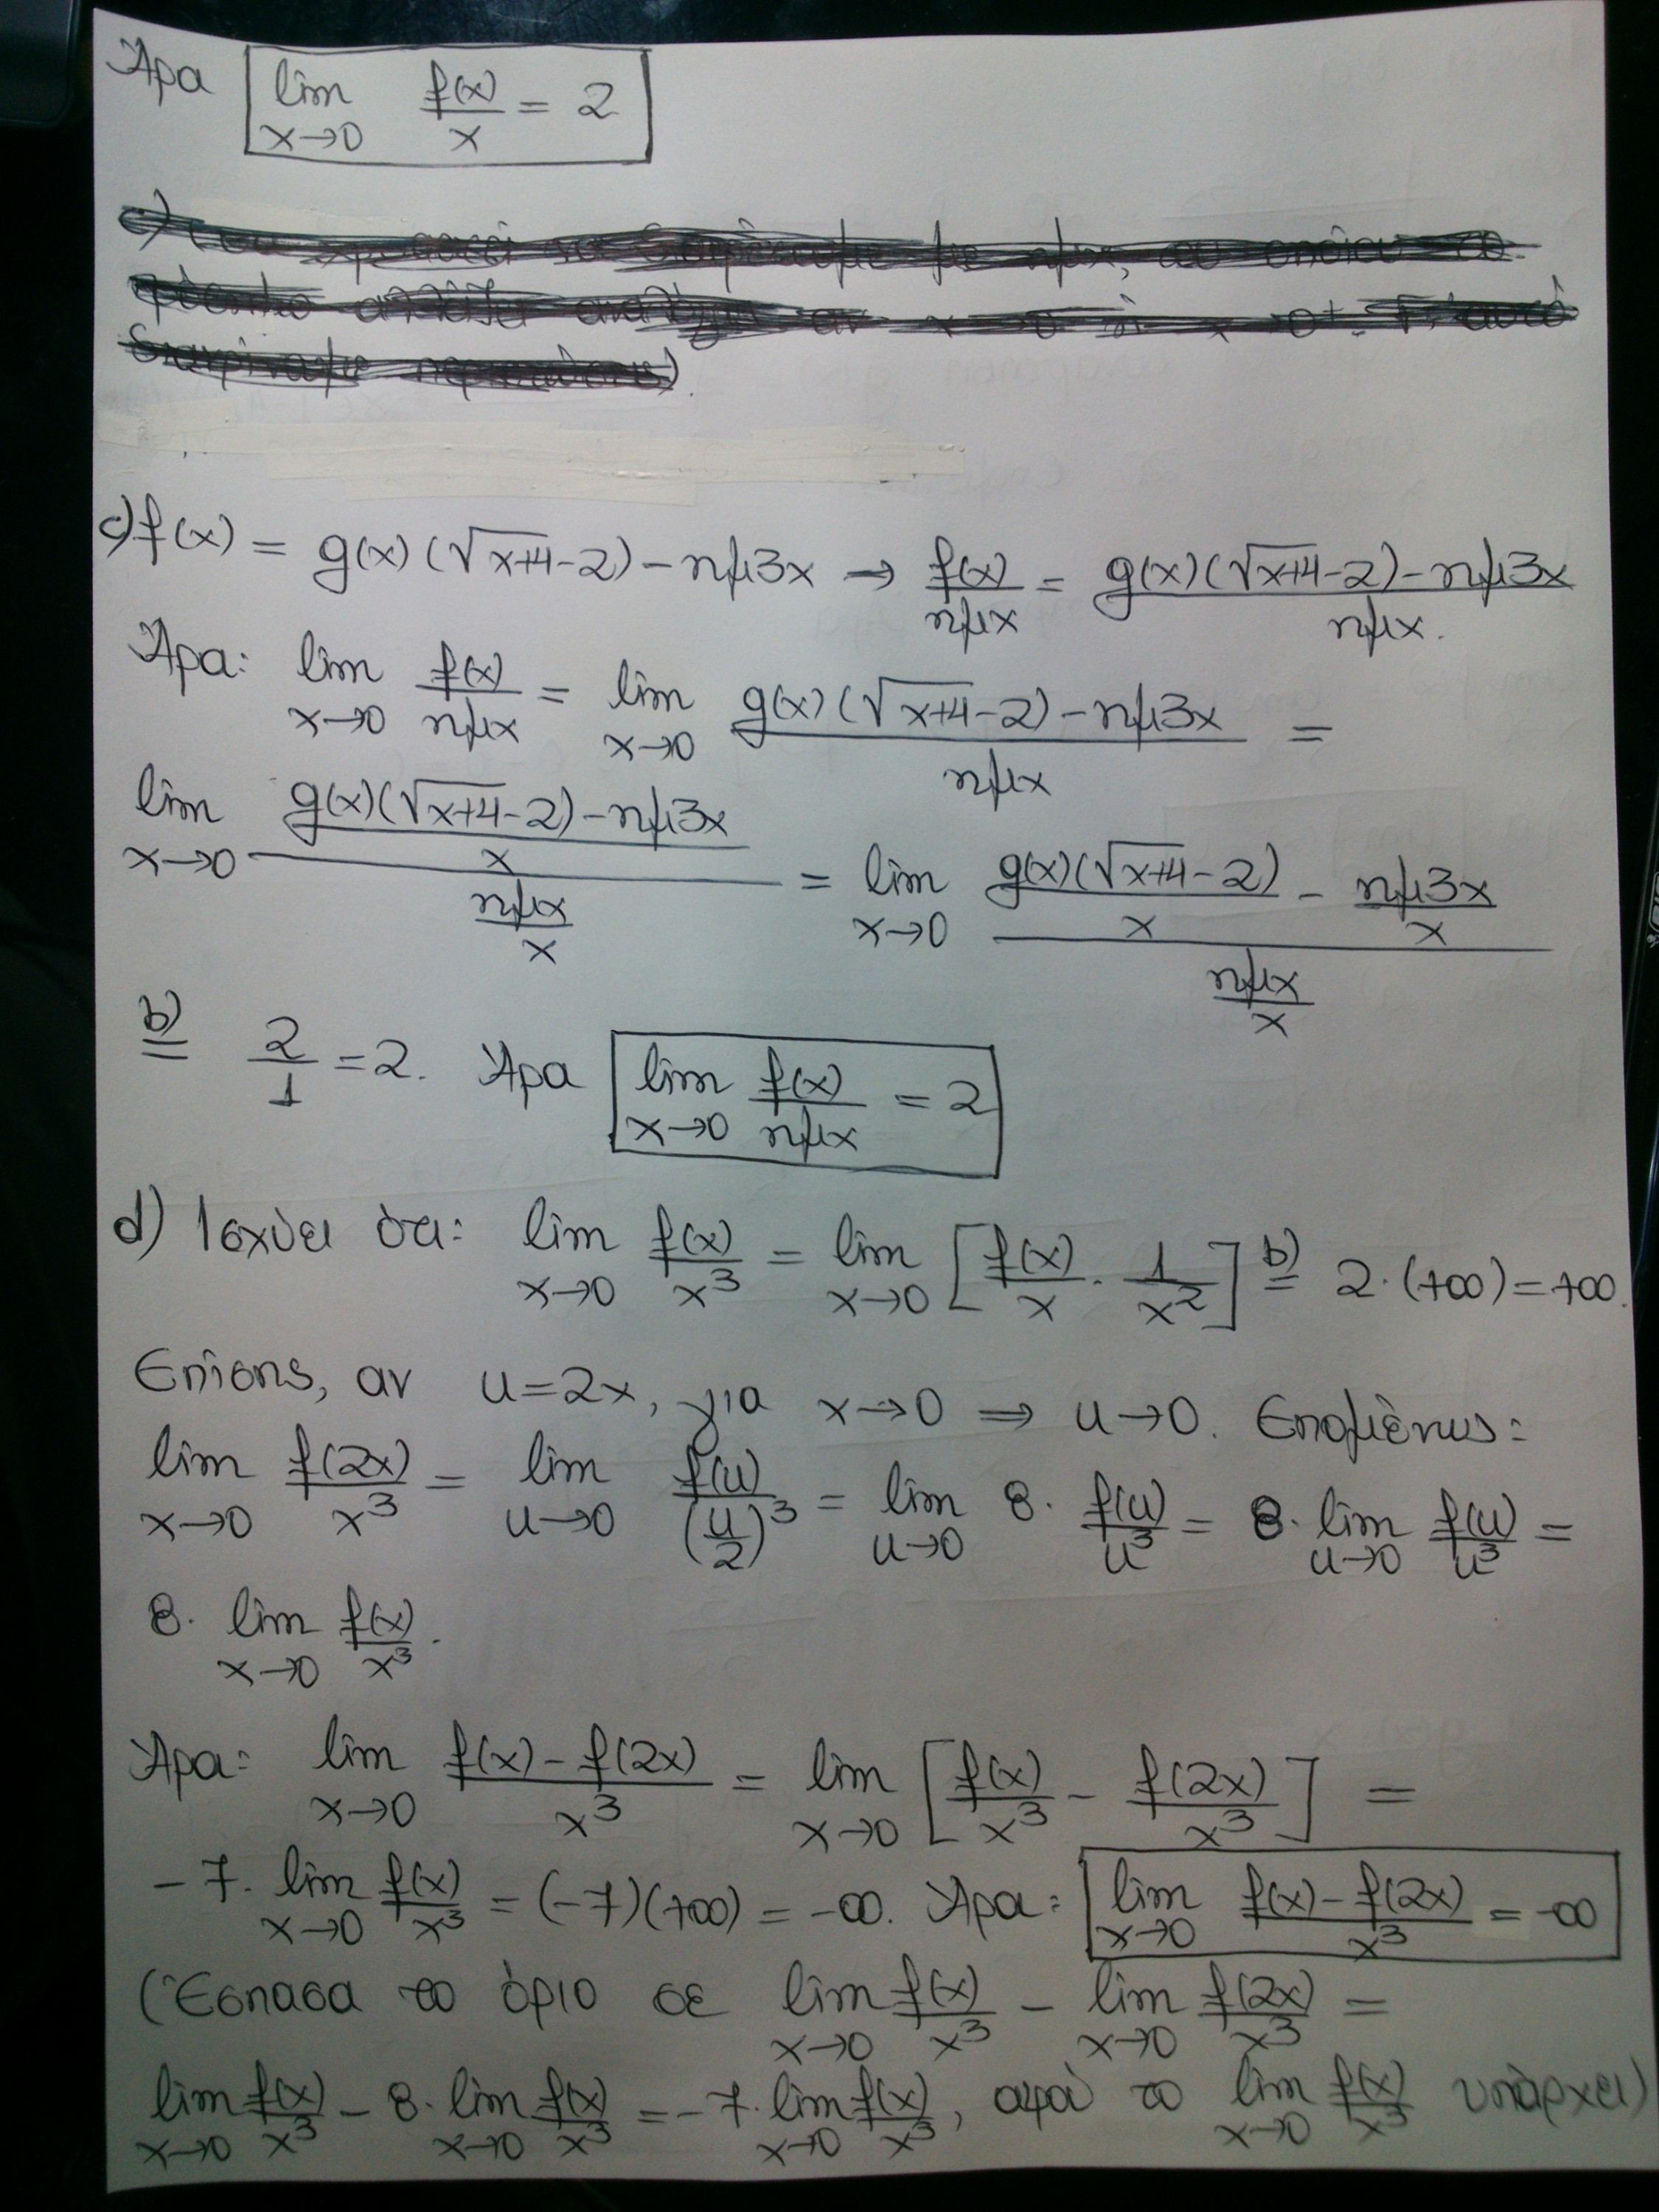 Άρα lim x→0 f(x)/x = 2
c) f(x) = g(x)(√x+4-2) - ημ3x → f(x)/ημx = g(x)(√x+4-2)-ημ3x/ημx.
Άρα: lim x→0 f(x)/ημx = lim x→0 g(x)(√x+4-2)-ημ3x/ημx =
lim x→0 g(x)(√x+4-2)-ημ3x/x/ημx/x = lim x→0 g(x)(√x+4-2)/x - ημ3x/x/ημx/x
b) = 2/1 = 2. Άρα lim x→0 f(x)/ημx = 2
d) Ισχύει ότι: lim x→0 f(x)/x³ = lim x→0 [f(x)/x · 1/x²] b) = 2·(+∞) = +∞.
Επίσης, αν u=2x, για x→0 ⇒ u→0. Επομένως:
lim x→0 f(2x)/x³ = lim u→0 f(u)/(u/2)³ = lim u→0 8· f(u)/u³ = 8· lim u→0 f(u)/u³ =
8· lim x→0 f(x)/x³.
Άρα: lim x→0 f(x)-f(2x)/x³ = lim x→0 [f(x)/x³ - f(2x)/x³] =
-7· lim x→0 f(x)/x³ = (-7)(+∞) = -∞. Άρα: lim x→0 f(x)-f(2x)/x³ = -∞
(Έσπασα το όριο σε lim x→0 f(x)/x³ - lim x→0 f(2x)/x³ =
lim x→0 f(x)/x³ - 8· lim x→0 f(x)/x³ = -7· lim x→0 f(x)/x³, αφού το lim x→0 f(x)/x³ υπάρχει)